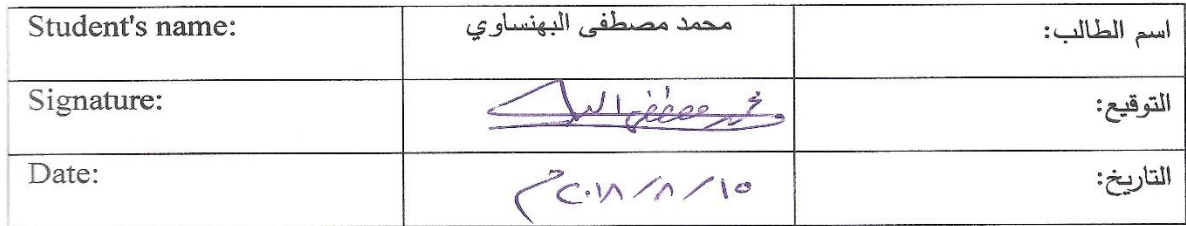 Student's name: محمد مصطفى البهنساوي اسم الطالب:
Signature: محمد مصطفى التوقيع:
Date: ١٥/٨/٢٠١٨م التاريخ: